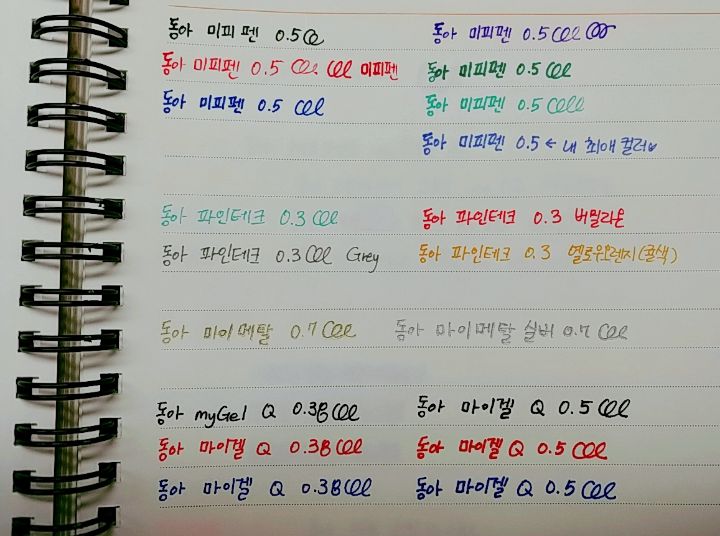 동아 미피펜 0.5
동아 미피펜 0.5
동아 미피펜 0.5 미피펜
동아 미피펜 0.5
동아 미피펜 0.5
동아 미피펜 0.5
동아 미피펜 0.5 ← 내 최애 컬러♥
동아 파인테크 0.3
동아 파인테크 0.3 버밀라운
동아 파인테크 0.3 Grey
동아 파인테크 0.3 옐로우오렌지(귤색)
동아 마이메탈 0.7
동아 마이메탈 실버 0.7
동아 myGel Q 0.38
동아 마이겔 Q 0.5
동아 마이겔 Q 0.38
동아 마이겔 Q 0.5
동아 마이겔 Q 0.38
동아 마이겔 Q 0.5